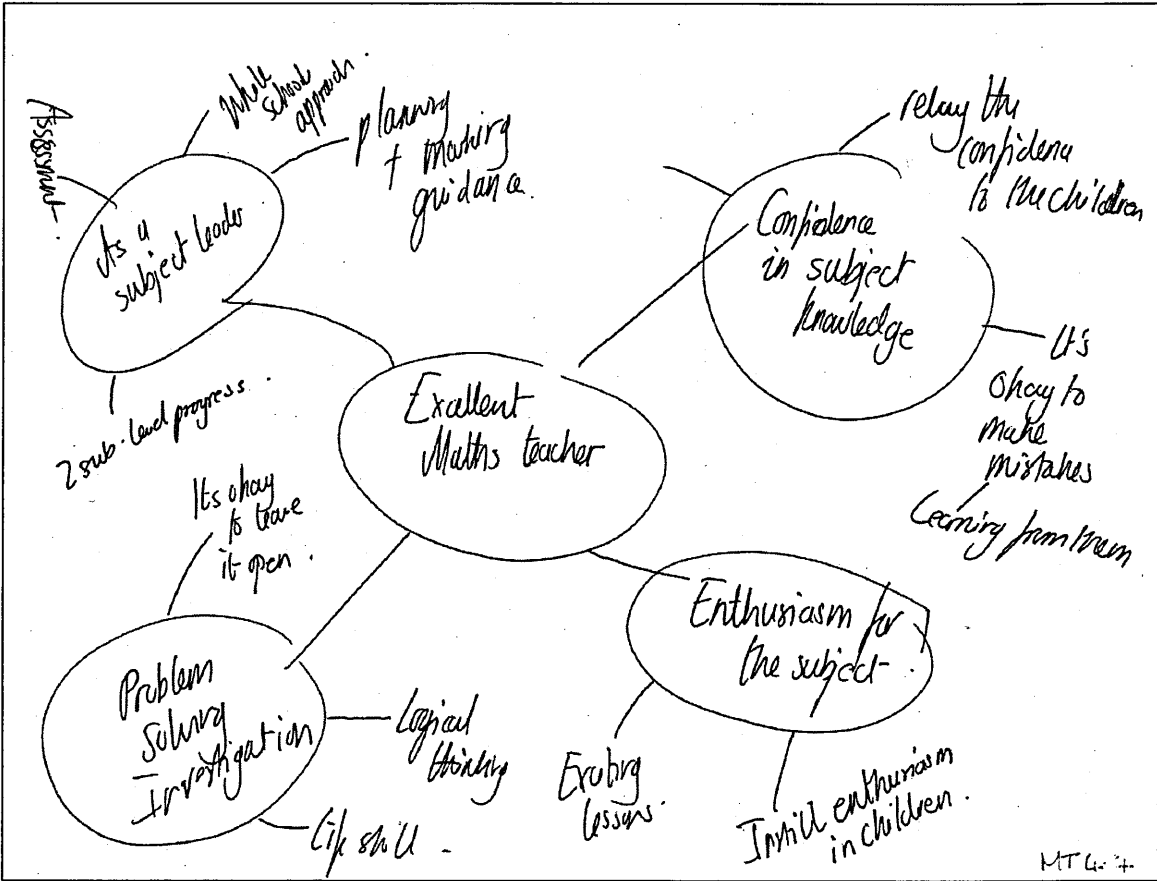 Assessment.
Whole
school
approach.
planning
+ marking
guidance.
As a
subject leader
2 sub-level progress.
relay the
confidence
to the children
Confidence
in subject
knowledge
It's
okay to
make
mistakes
Learning from them
Excellent
Maths teacher
Its okay
to leave
it open.
Problem
Solving
Investigation
Logical
thinking
Life skill.
Enthusiasm for
the subject.
Exciting
lessons.
Instill enthusiasm
in children.